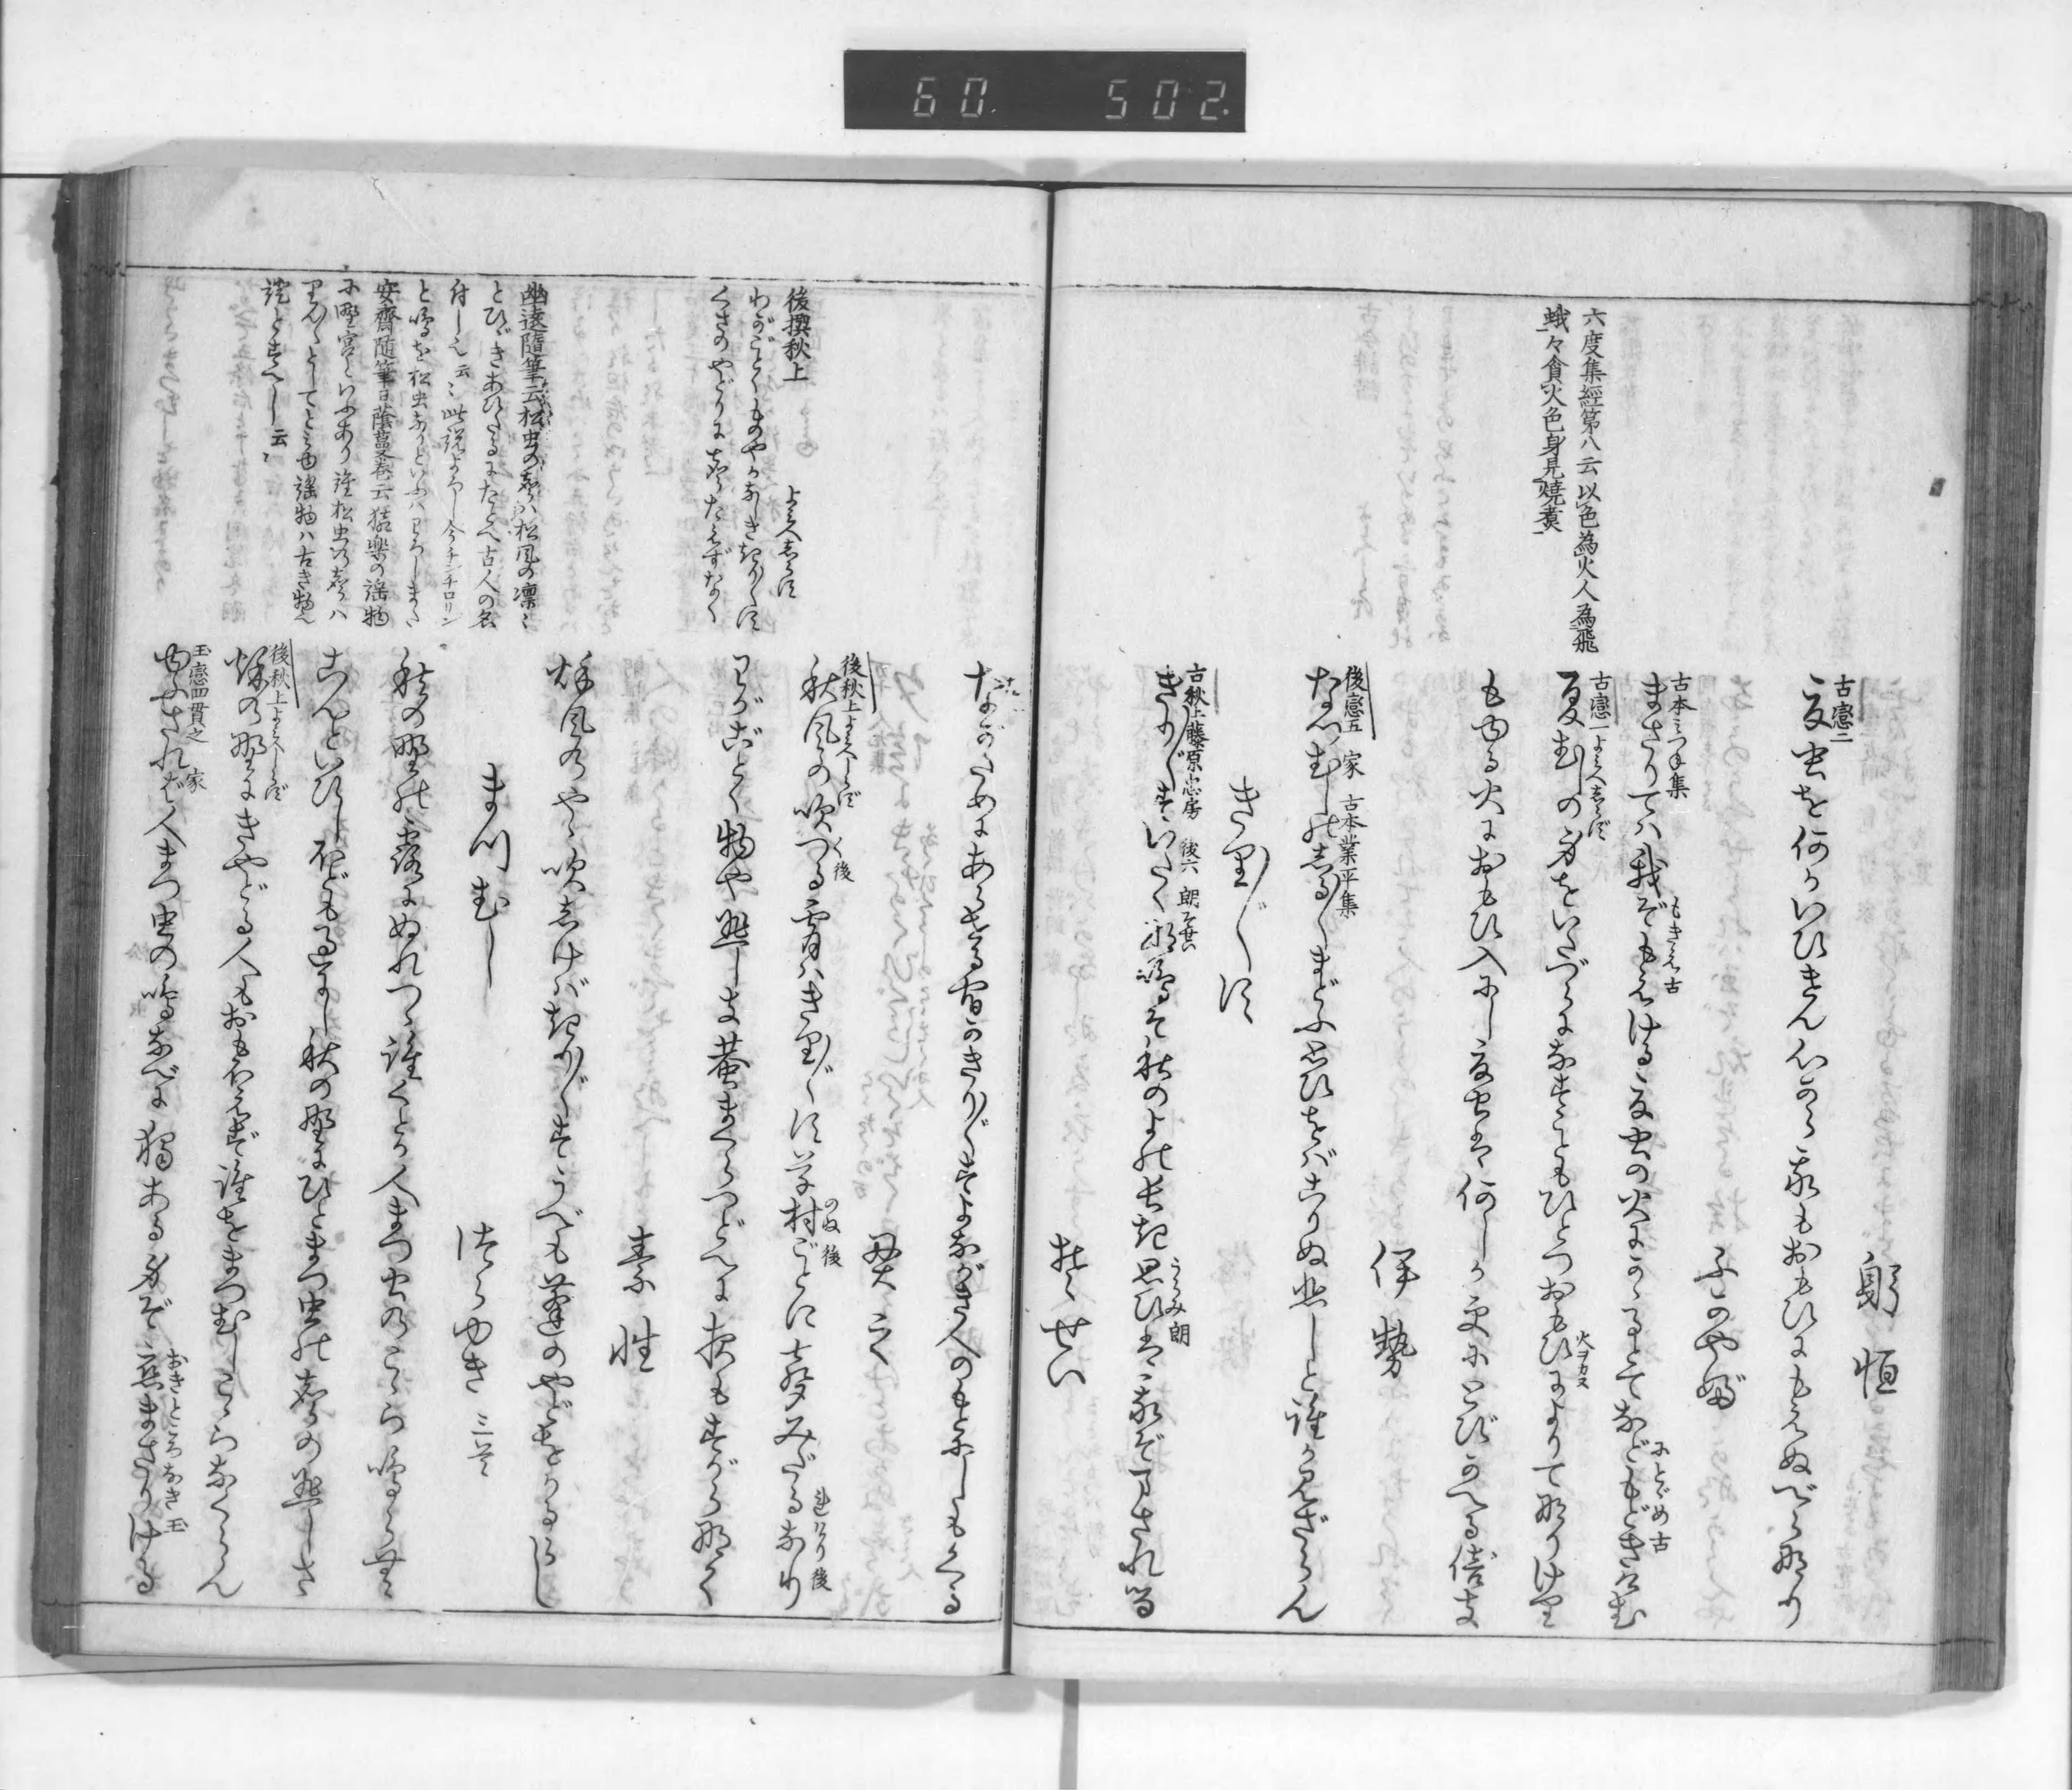 60. 502.
六度集經第八云以色為火人為飛
蛾々貪火色身見燒煑
躬恒
古戀二
夏虫を何かいひきん心から我もおもひにもえぬべら那り
ふかやぶ
古本みつね集
まさりてハ我ぞもえける夏虫の火にかゝるとてなどもどきけむ
もきえ古
にとゞめ古
古戀一よみ人しらず
夏むしの身をいたづらになすこともひとつおもひによりて那りけり
火ヲカヌ
もゆる火におもひ入にし夏虫は何しか更にとびかへる
伊勢
後戀五 家 古本業平集
なつむしのしる〳〵まどふ思ひをばこりぬ悲しと誰か見ざらん
きり〴〵す
古秋上藤原忠房 後六 朗そせい
きり〴〵すいたくな鳴そ秋のよの長き思ひは我ぞまされる
うらみ朗
そせい
ながためにあらせる宿かきり〴〵すよながき人のもとにしもくる
貫之
後撰秋上 よみ人しらす
わがごとくものやかなしききり〴〵す
くさのやどりに聲たえずなく
後秋上よみ人しらず
秋風の吹つる霄ハきり〴〵す草村ごとに聲みだるなり
く後
のね後
れけり後
わがごとく物や悲しき蛬まくらつどへに夜もすがら那く
素性
秋風のやゝ吹しけばきり〴〵すうべも蓬のやどをかるらし
まつむし
つらゆき 三首
幽遠隨筆云松虫の聲ハ松風の凛々
とひゞきあひたるにたとへ古人の名
付し也云々此説よろし今チンチロリン
と鳴を松虫なりといふハわろしまた
安齋隨筆日蔭蔓巻云猿樂の謠物
に野宮といふあり誰松虫の聲ハ
りん〳〵として云々謠物ハ古き物也
證とすべし云々
秋の野の露にぬれつゝ誰くとか人まつ虫のこゝら鳴らむ
こんといひしほども過にし秋の野にひとまつ虫の聲の悲しさ
後秋上よみ人しらず
秋の野にきやどる人もおもほえず誰をまつむしこゝらなくらん
玉戀四貫之 家
ゆふされば人まつ虫の鳴なべに獨ある身ぞ戀まさりける
おきところなき玉